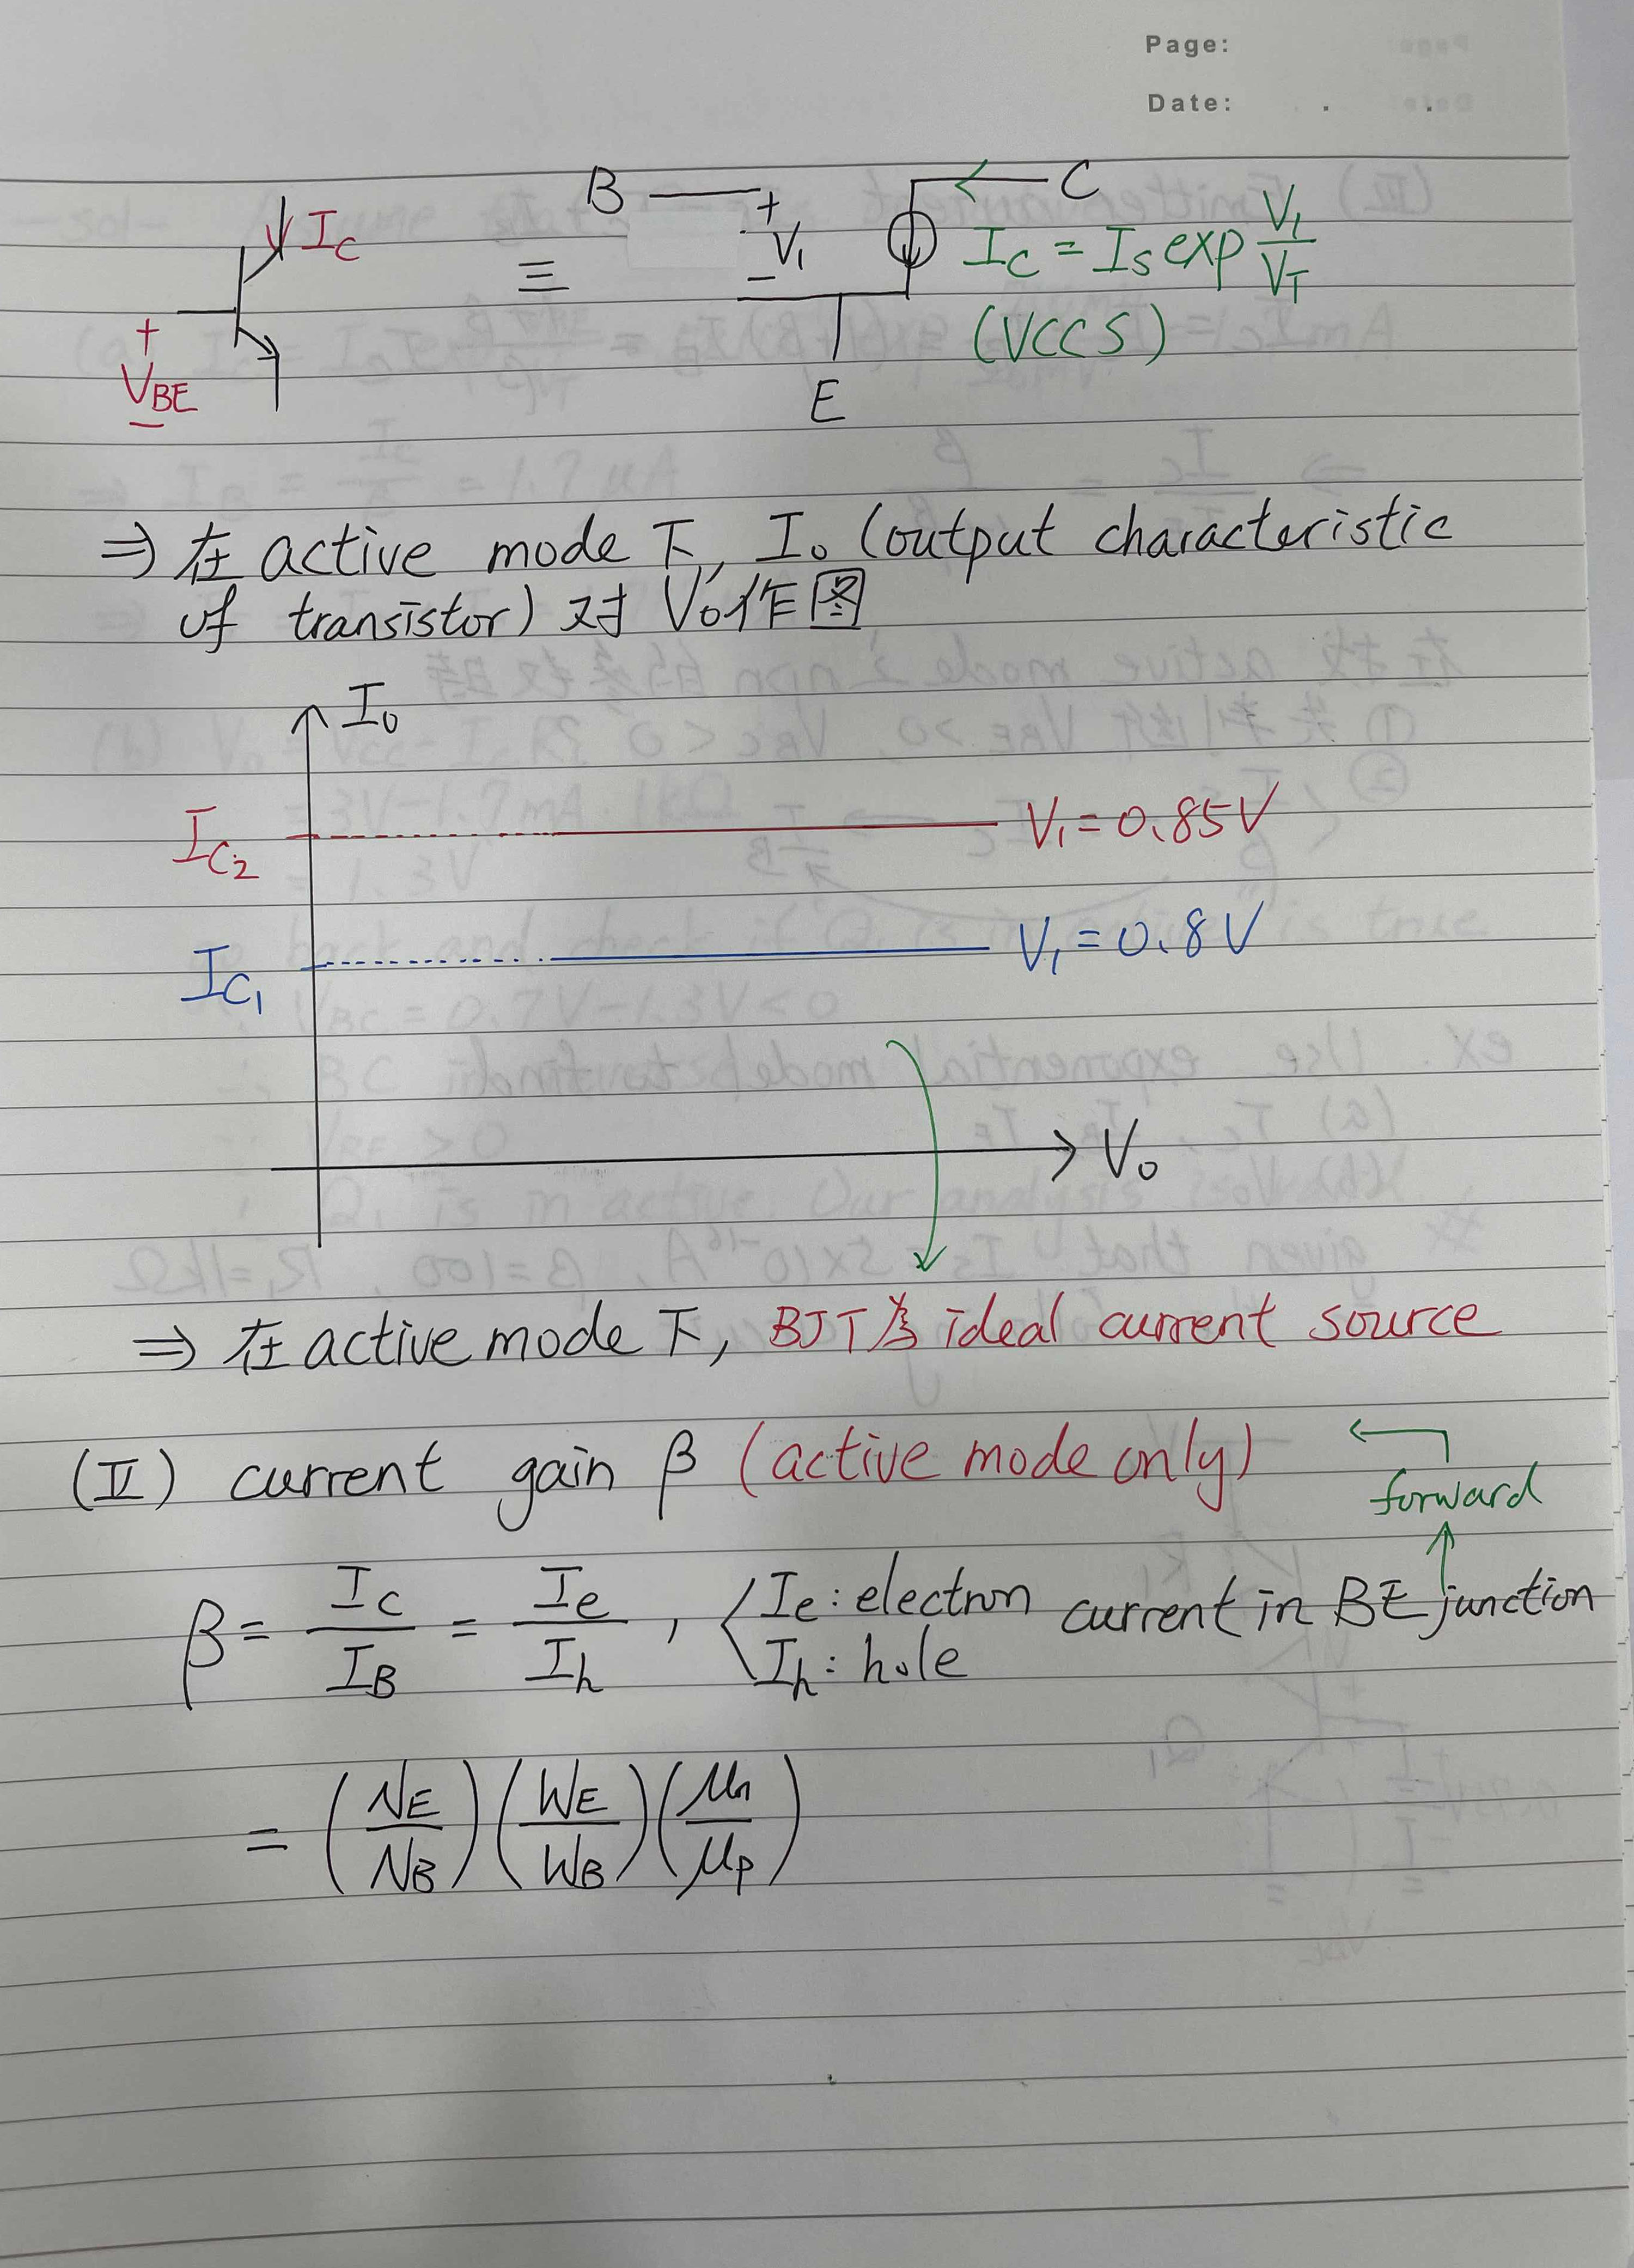 Page:
Date: . .
I_C
+
V_BE
−
≡
B
+
V_1
−
C
E
I_C = I_S exp V_1/V_T
(VCCS)
⇒ 在 active mode 下, I_o (output characteristic
of transistor) 对 V_o 作图
I_o
I_C2
V_1 = 0.85V
I_C1
V_1 = 0.8V
V_o
⇒ 在 active mode 下, BJT 為 ideal current source
(II) current gain β (active mode only)
forward
β = I_C/I_B = I_e/I_h , < I_e : electron current in BE junction
I_h : hole
= (N_E/N_B)(W_E/W_B)(μ_n/μ_p)